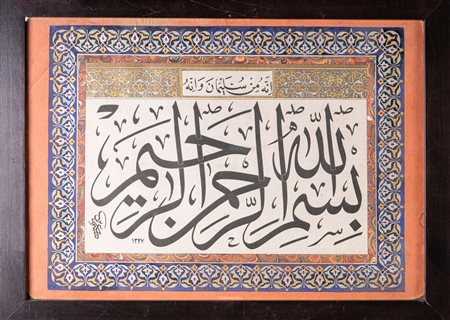 إنه من سليمان وإنه
بسم الله الرحمن الرحيم
١٣٢٧